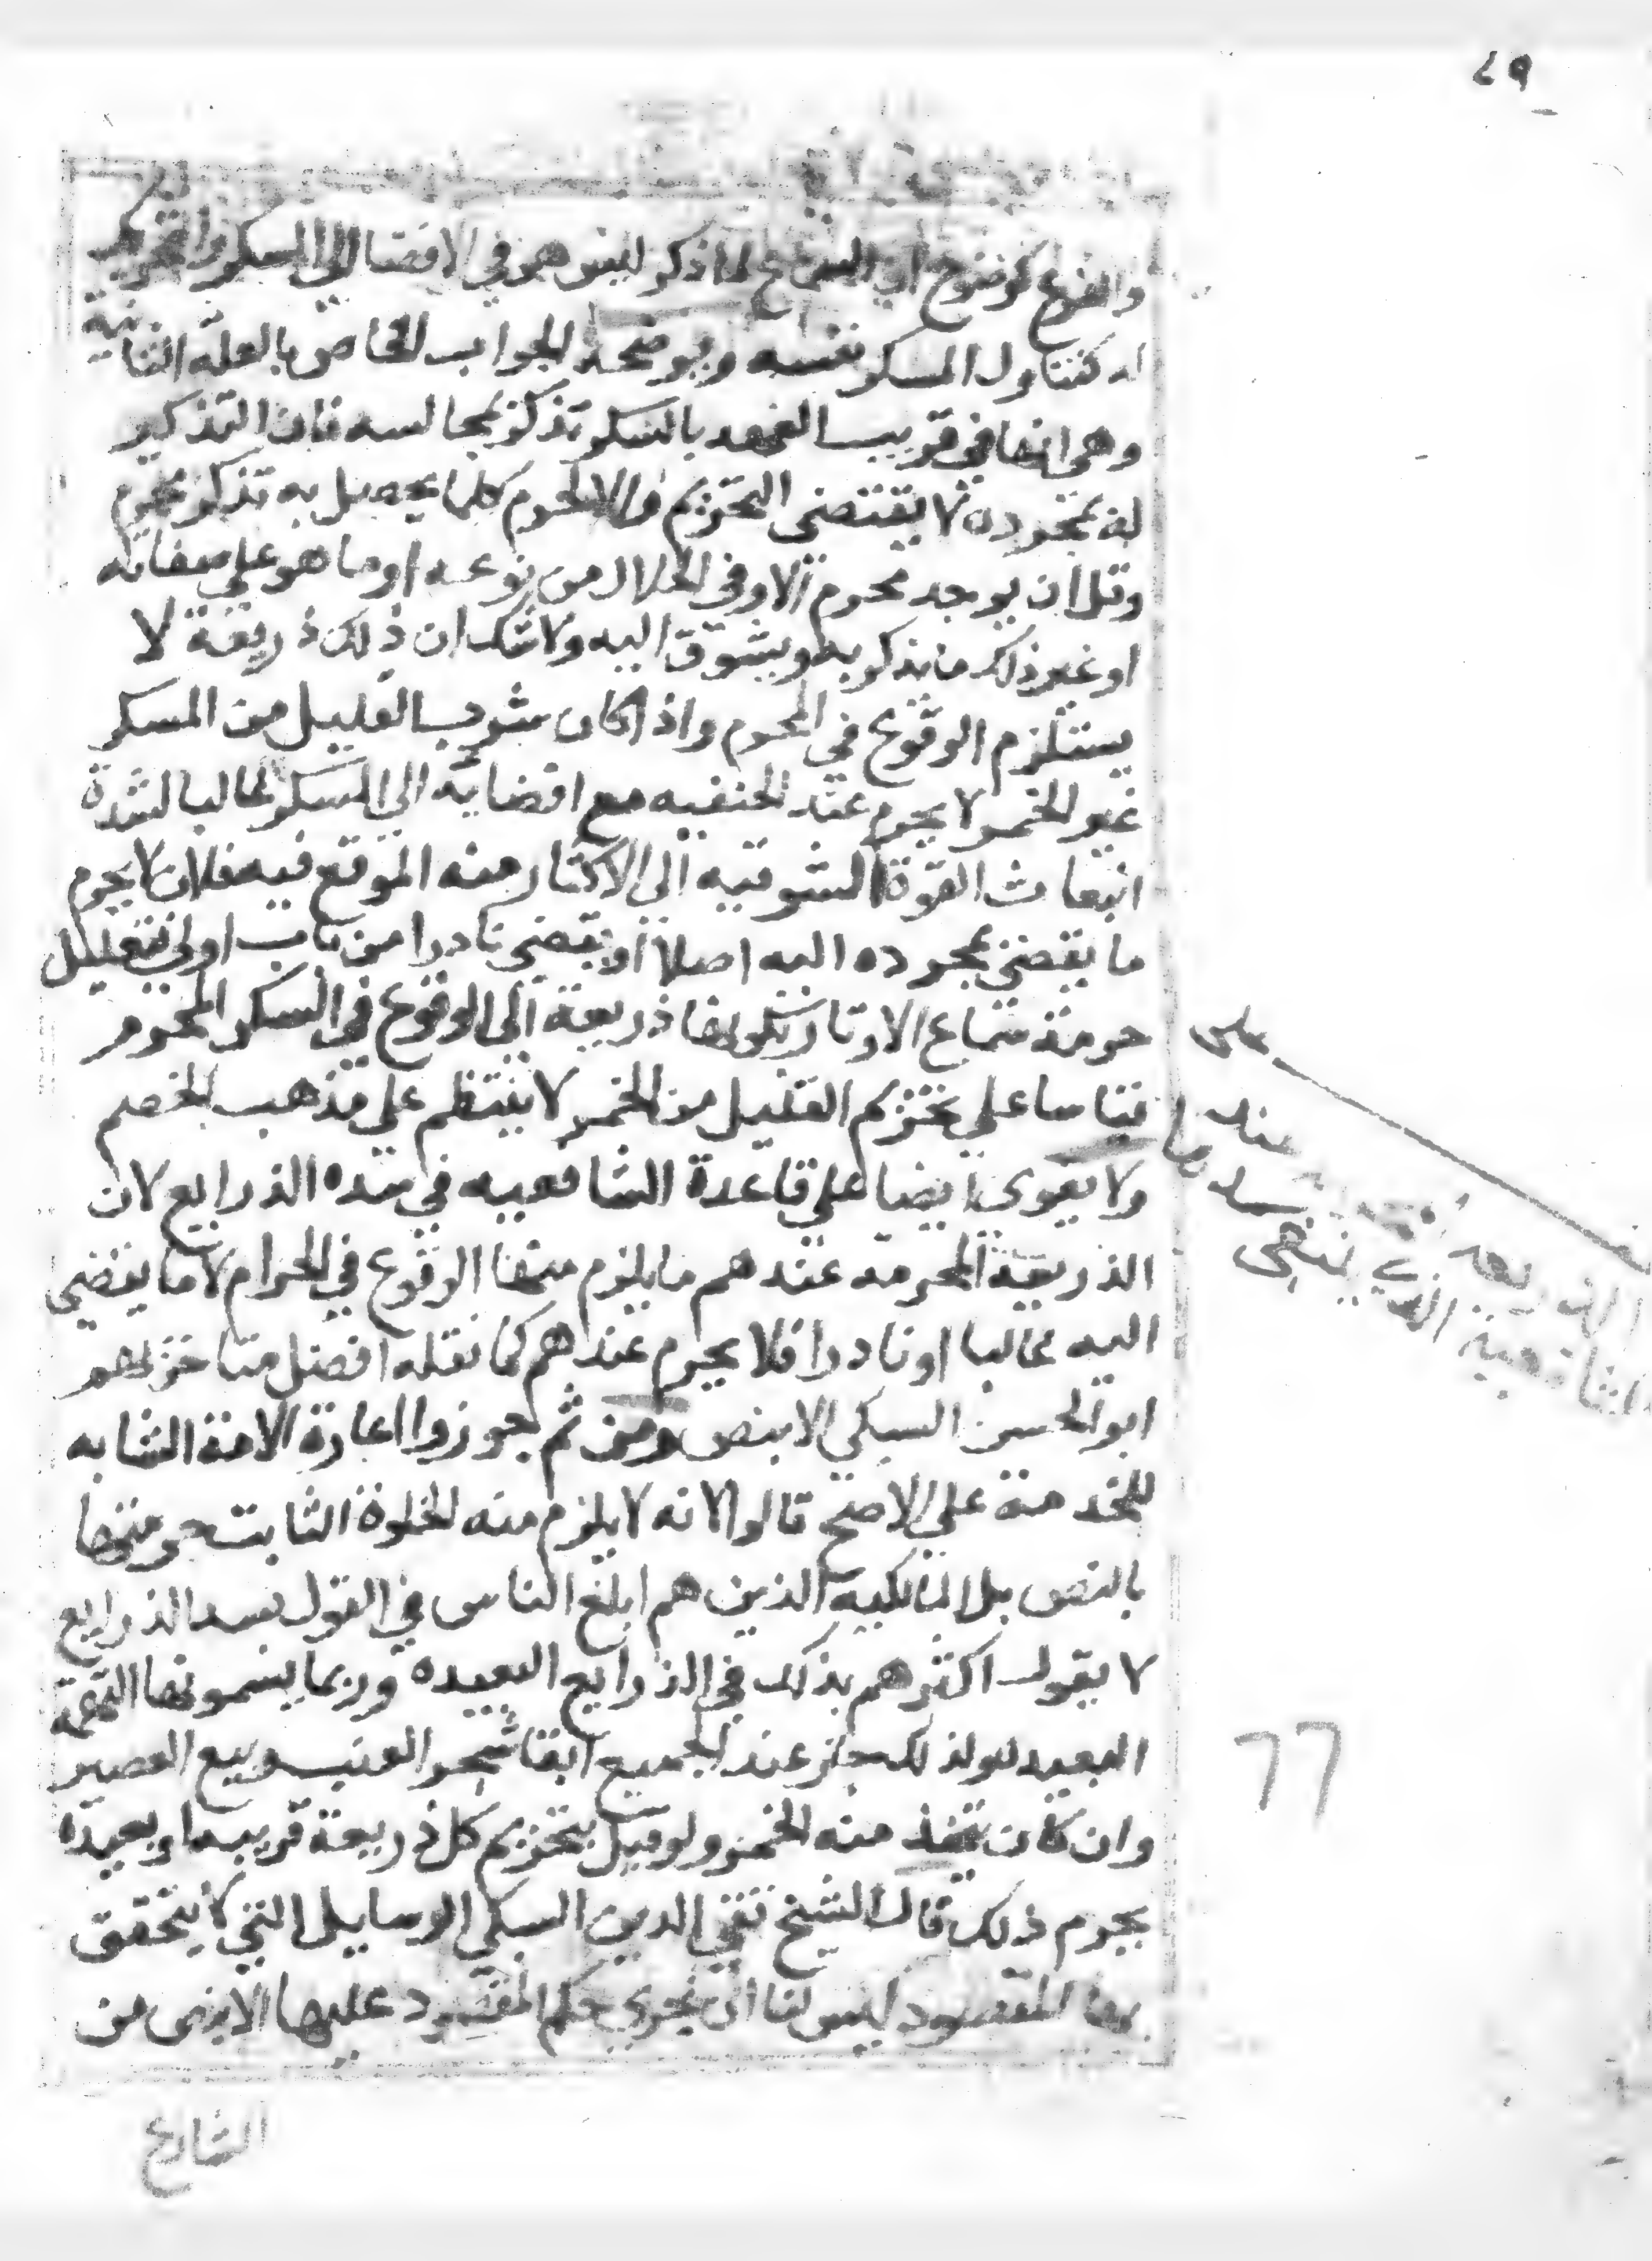 ٤٩
والفرع كوضوح ان السماع لما ذكر ليس هو في الافضا الى السكر والتحريك
له كتناول المسكر نفسه ويوضحه الجواب الخاص بالعلة الثانية
وهي انها في قريب العهد بالسكر تذكر بمجالسه فان التذكير
له بمجرده لا يقتضي التحريم والا لحرم كلما يحصل به تذكر محرم
وقل ان يوجد محرم الا وفي الحلال من نوعه او ما هو على صفاته
او غير ذلك ما يذكر به ويشوق اليه ولا شك ان ذلك ذريعة لا
يستلزم الوقوع في المحرم واذا كان شرب القليل من المسكر
غير الخمر لا يحرم عند الحنفيه مع افضايه الى المسكر غالبا لشدة
انبعاث القوة الشوقيه الى الاكثار منه الموقع فيه فلان لا يحرم
ما يفضي بمجرده اليه اصلا او يفضي نادرا من باب اولى فتعليل
حرمة سماع الاوتار بكونها ذريعة الى الوقوع في السكر المحرم
قياسا على تحريم القليل من الخمر لا ينتظم على مذهب الخصم
ولا يقوى ايضا على قاعدة الشافعيه في سده الذرايع لان
الذريعة المحرمة عندهم ما يلزم منها الوقوع في الحرام لا ما يفضي
اليه غالبا او نادرا فلا يحرم عندهم كما نقله افضل متاخريهم
ابو الحسن السبكي الا بنص ومن ثم جوزوا اعارة الامة الشابه
للخدمة على الاصح قالوا لانه لا يلزم منه الخلوة الثابت حرمتها
بالنص بل المالكيه الذين هم ابلغ الناس في القول بسد الذرايع
لا يقول اكثرهم بذلك في الذرايع البعيده وربما يسمونها التهمة
البعيده ولذلك جاز عند الجميع ابقا شجر العنب وبيع العصير
وان كان يتخذ منه الخمر ولو قيل بتحريم كل ذريعة قريبه او بعيده
يحرم ذلك قال الشيخ تقي الدين السبكي الوسايل التي لا يتحقق
بها المقصود ليس لنا ان نجري حكم المقصود عليها الا بنص من
الشارع
على
عند
الذريعه
الشافعية
٦٦